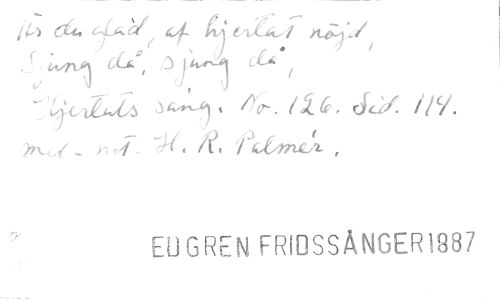 Är du glad, af hjertat nöjd,
Sjung då, sjung då,
Hjertats sång. No. 126. Sid. 114.
med not. H. R. Palmér.
EUGREN FRIDSSÅNGER 1887